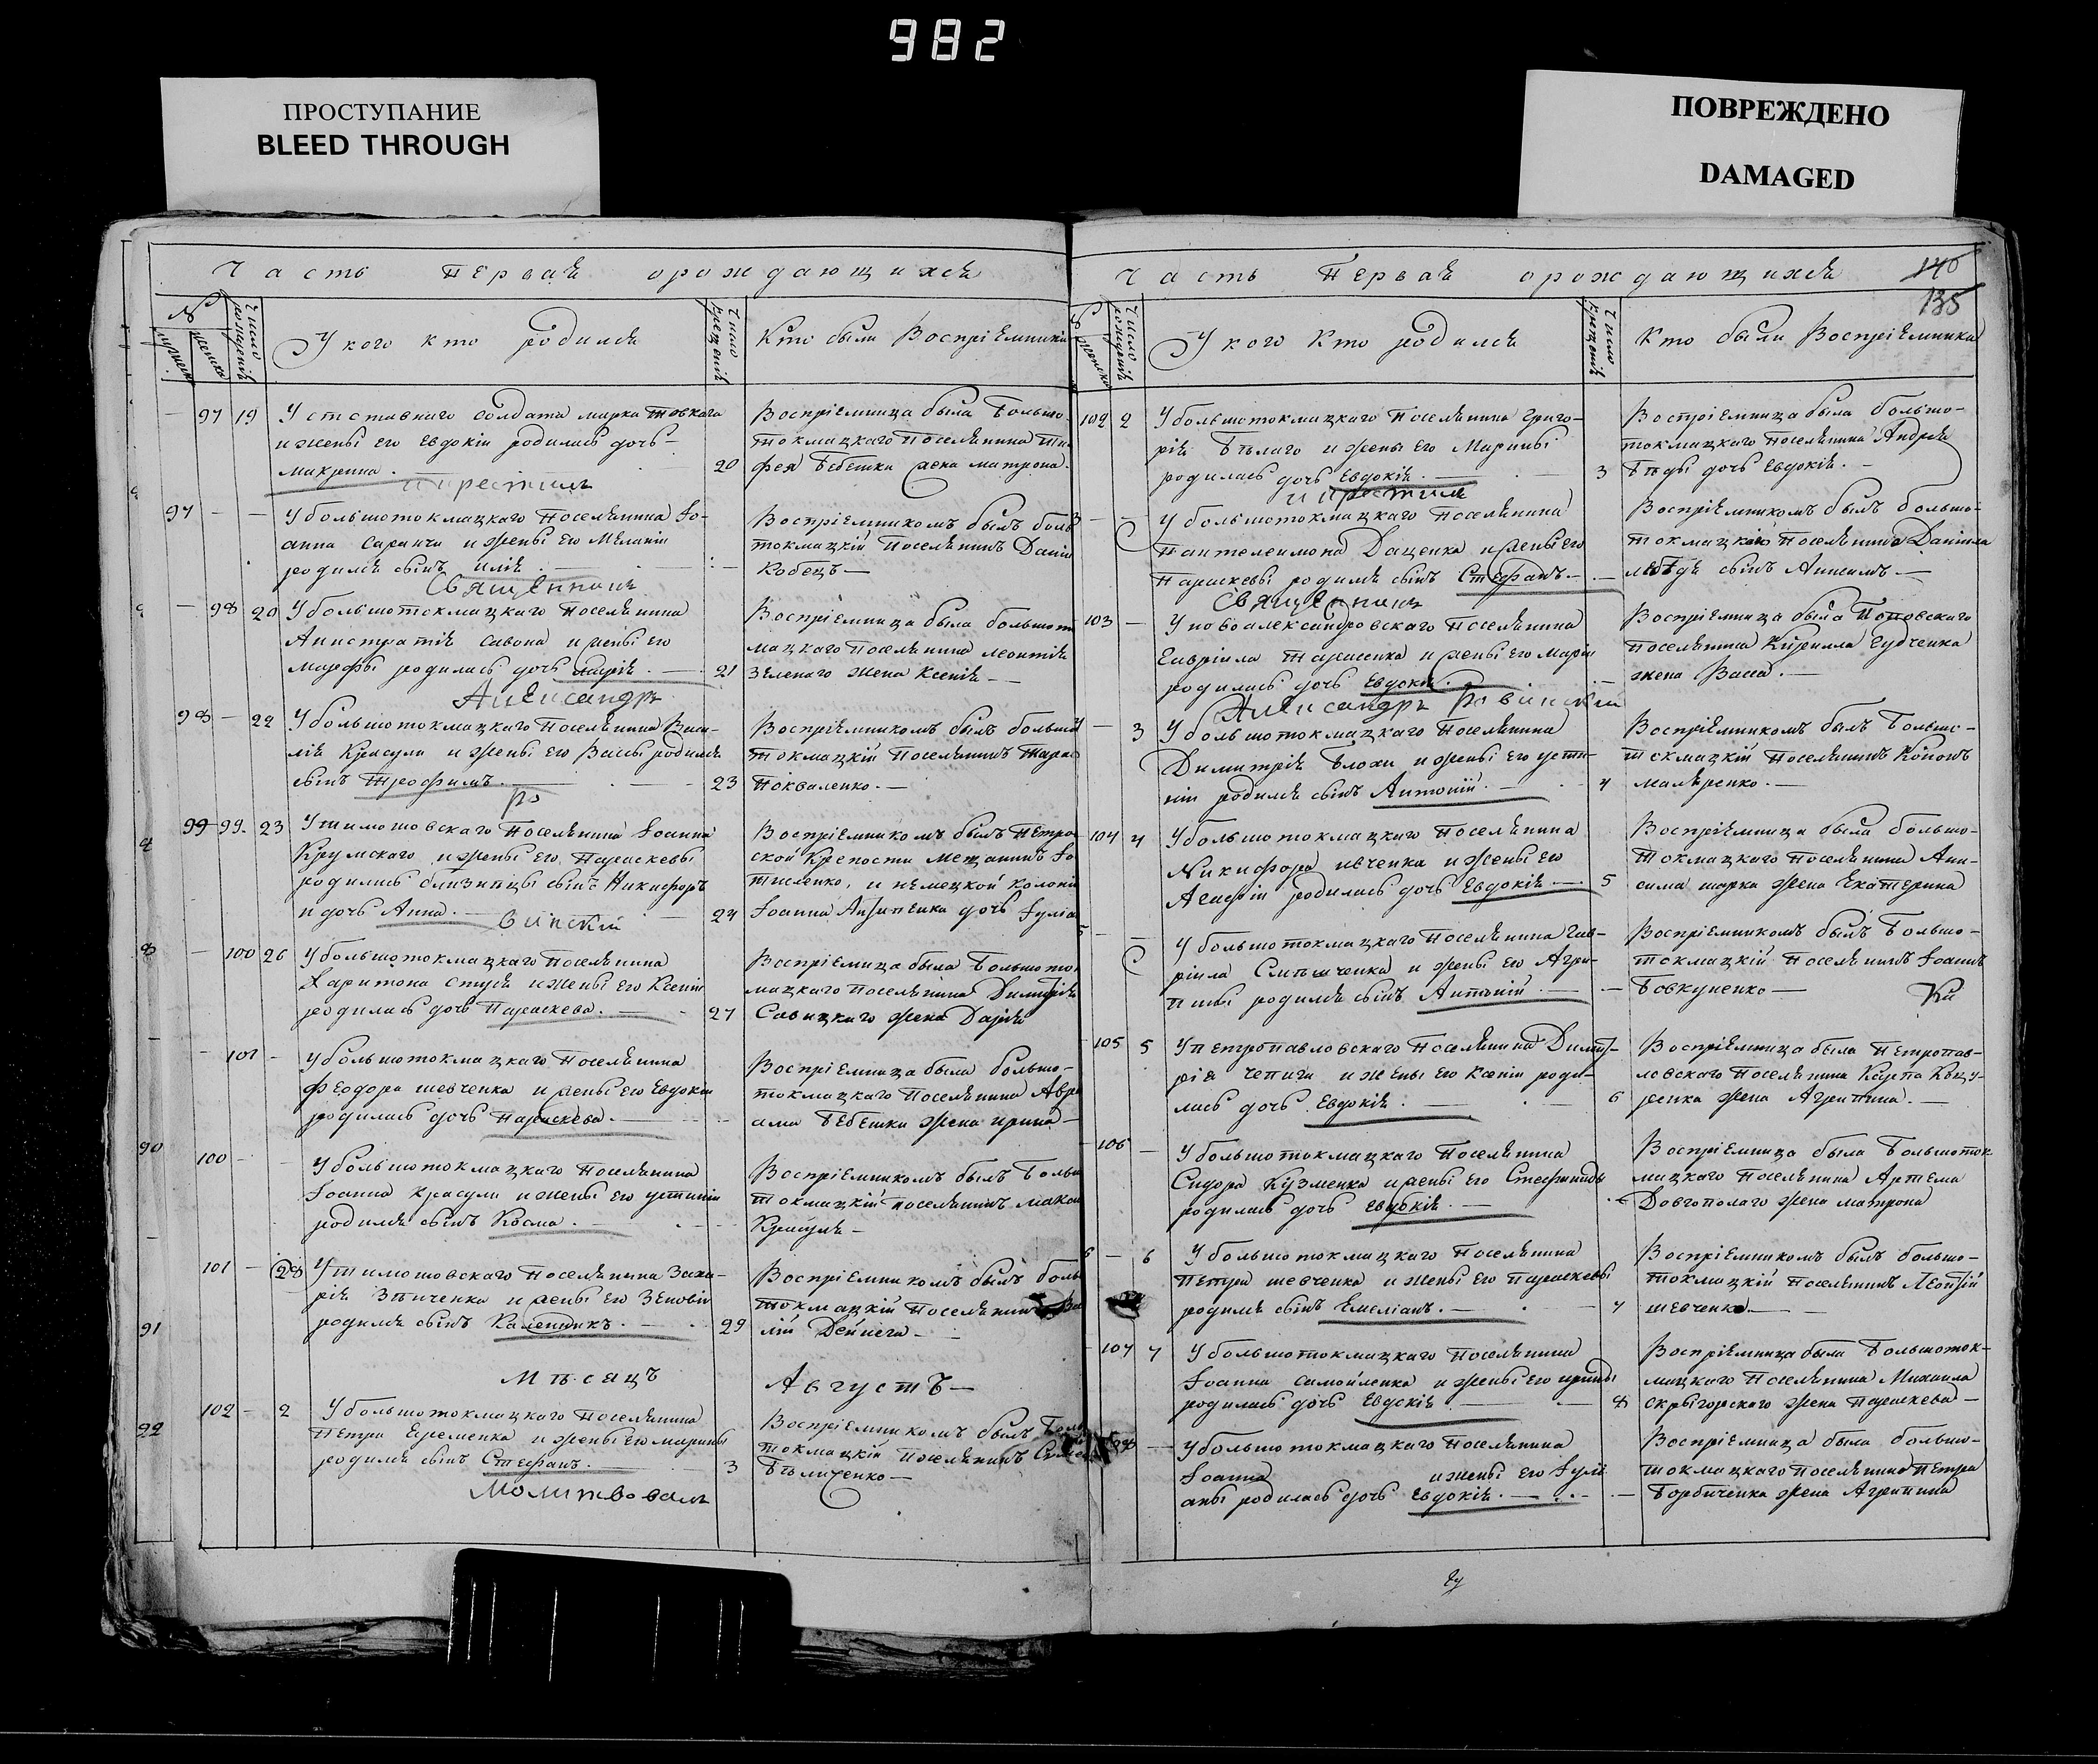 982
ПРОСТУПАНИЕ
BLEED THROUGH
ПОВРЕЖДЕНО
DAMAGED
Часть первая о рождающихся
№
Число рождения
У кого кто родился
Число крещения
Кто были Восприемники
97 19 У отставнаго солдата марка
и жены его Евдокии родилась дочь
макрина.
20
Восприемница была Большо-
токмацкаго поселянина
Бебешки жена матрона.
и крестил
97 У большотокмацкаго Поселянина Іо-
анна Саранчи и жены его Меланіи
родился сынъ илія.
Восприемникомъ былъ боль
токмацкій Поселянинъ Дани
Кобецъ
Священник
98 20 У большотокмацкаго Поселянина
Савона и жены его
Марфы родилась дочь марія.
21
Восприемница была большото
мацкаго Поселянина леонтія
Зеленаго жена Ксенія
Александр
98 22 У большотокмацкаго Поселянина Васи-
лія Красули и жены его Вассы родился
сынъ Трофимъ.
23
Восприемникомъ былъ большо
токмацкій Поселянинъ
Похваленко.
Ро
99 99. 23 У тимошовскаго Поселянина Іоанна
Крумскаго и жены его Параскевы
родились близнцы сынъ Никифоръ
и дочь Анна.
24
Восприемникомъ былъ Петро
ской Крепости мещанинъ Іо
и немецкой колоніи
Іоанна дочь Іулія
винский
100 26 У большотокмацкаго Поселянина
Харитона и жены его Ксеніи
родилась дочь Параскева.
27
Восприемница была Большото
мацкаго поселянина Димитрія
Савицкаго жена Дарія
101 У большотокмацкаго Поселянина
Феодора шевченка и жены его Евдокіи
родилась дочь Параскева.
Восприемница была большо-
токмацкаго Поселянина Авра
ама Бебешки жена ирина
100 У большотокмацкаго Поселянина
Іоанна Красули и жены его устиніи
родился сынъ Косма.
Восприемникомъ былъ Больш
токмацкій поселянинъ
Красуля
101 28 У тимошовскаго Поселянина Заха-
рія и жены его Зеновіи
родился сынъ Каленикъ.
29
Восприемникомъ былъ боль
токмацкій Поселянинъ Ва
лій Дейнега
Месяцъ Августъ
102 2 У большотокмацкаго Поселянина
Петра Еременка и жены его марины
родился сынъ Стефанъ.
3
Восприемникомъ былъ Боль
токмацкій Поселянинъ
Беличенко
Молитвовал
Часть Первая о рождающихся
140
135
У кого Кто родился
Кто были Восприемники
102 2 У большотокмацкаго Поселянина Григо-
рія Белаго и жены его Марины
родилась дочь Евдокія.
3
Восприемница была большо-
токмацкаго Поселянина Андрея
Беды дочь Евдокія.
и крестил
У большотокмацкаго Поселянина
Пантелеимона Даценка и жены его
Параскевы родился сынъ Стефанъ.
Восприемникомъ былъ большо-
токмацкаго Поселянина Даніила
сынъ Анисимъ.
Священник
103 У новоалександровскаго Поселянина
Гавріила Тарасенка и жены его Маріи
родилась дочь Евдокія.
Восприемница была Поповскаго
поселянина Кирилла Гудченка
жена Васса.
Александр Ровинский
3 У большотокмацкаго Поселянина
Димитрія Блохи и жены его усти-
ніи родился сынъ Антоній.
4
Восприемникомъ былъ Больше-
токмацкій Поселянинъ Кононъ
маляренко.
104 4 У большотокмацкаго Поселянина
Никифора ивченка и жены его
Агафіи родилась дочь Евдокія
5
Восприемница была большо-
токмацкаго Поселянина Ани-
сима жена Екатерина
У большотокмацкаго Поселянина Гав-
ріила и жены его Агри-
пины родился сынъ Антоній
Восприемникомъ былъ Большо-
токмацкій Поселянинъ Іоаннъ
Бовкуненко
105 5 У петропавловскаго Поселянина Димит-
рія Чепиги и жены его Ксеніи роди-
лась дочь Евдокія.
6
Восприемница была Петропав-
ловскаго Поселянина Карпа
жена Агрипина.
106 У большотокмацкаго Поселянина
Сидора Кузменка и жены его Стефаниды
родилась дочь Евдокія.
Восприемница была Большоток
мацкаго Поселянина Артема
Довгополаго жена матрона
6 У большотокмацкаго Поселянина
Петра шевченка и жены его Параскевы
родился сынъ Емеліанъ.
7
Восприемникомъ былъ большо-
токмацкій Поселянинъ Леонтій
шевченко
107 7 У большотокмацкаго Поселянина
Іоанна самойленка и жены его ирины
родилась дочь Евдокія
8
Восприемница была Большоток-
мацкаго Поселянина Михаила
скрыгорскаго жена Параскева
У большотокмацкаго Поселянина
Іоанна и жены его Іулі
аны родилась дочь Евдокія.
Восприемница была большо-
токмацкаго Поселянина Петра
Горбиченка жена Агрипина